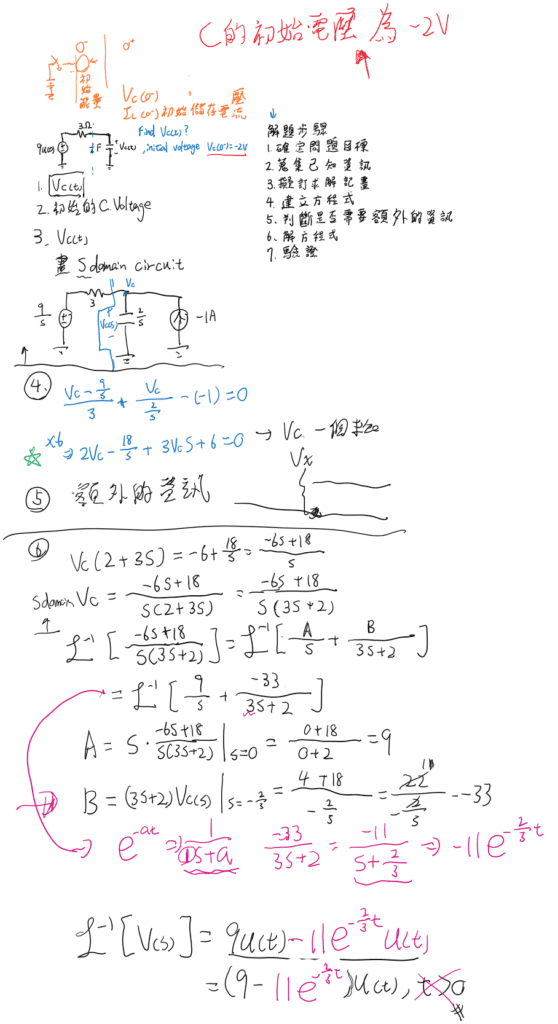 C的初始電壓 為 -2V
0⁻ 0⁺
初始能量
Vc(0⁻) : 壓
IL(0⁻) 初始儲存電流
3Ω
9u(t)
F
Vc(t)
Find Vc(t)?
, initial voltage Vc(0⁻)=-2V
解題步驟
1. 確定問題目標
2. 蒐集已知資訊
3. 擬訂求解計畫
4. 建立方程式
5. 判斷是否需要額外的資訊
6. 解方程式
7. 驗證
1. Vc(t)
2. 初始的C. Voltage
3. Vc(t)
畫 S domain circuit
9/s 3 Vc Vc(s) 2/s -1A
④ (Vc - 9/s)/3 + Vc/(2/s) - (-1) = 0
x6 ⇒ 2Vc - 18/s + 3VcS + 6 = 0 → Vc 一個未知
Vx
⑤ 額外的資訊
⑥ Vc(2+3S) = -6 + 18/s = (-6S+18)/s
S domain Vc = (-6S+18)/(S(2+3S)) = (-6S+18)/(S(3S+2))
ℒ⁻¹[(-6S+18)/(S(3S+2))] = ℒ⁻¹[A/S + B/(3S+2)]
= ℒ⁻¹[9/s + -33/(3S+2)]
A = S · (-6S+18)/(S(3S+2)) |s=0 = (0+18)/(0+2) = 9
B = (3S+2)Vc(s) |s=-2/3 = (4+18)/(-2/3) = 22/(-2/3) 11 = -33
→ e^(-at) ⇒ 1/(1S+a) -33/(3S+2) = -11/(S+2/3) ⇒ -11e^(-2/3 t)
ℒ⁻¹[V(s)] = 9u(t) - 11e^(-2/3 t) u(t)
= (9 - 11e^(-2/3 t)) u(t), t>0 #